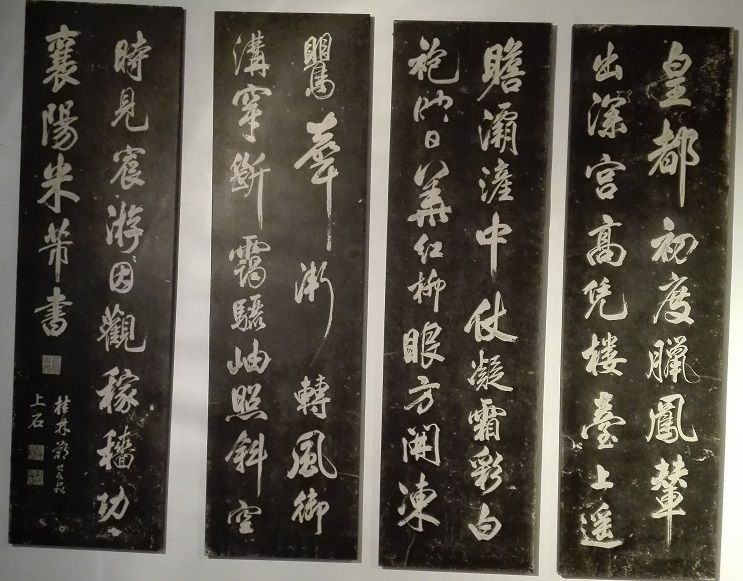 皇都初度臘鳳輦
出深宮高凭楼臺上遥
瞻灞滻中仗凝霜彩白
袍映日華紅柳眼方開凍
鸎聲漸轉風御
溝穿斷靄驪岫照斜空
時見宸游因觀稼穡功
襄陽米芾書
桂林
上石